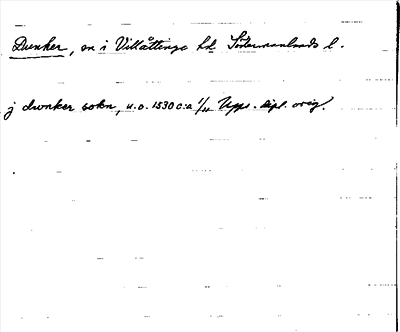 Dunker, sn i Villåttinge hd Södermanlands l.
j dwnker sokn, u.o. 1530 c:a 1/11 Upps. dipl. orig.